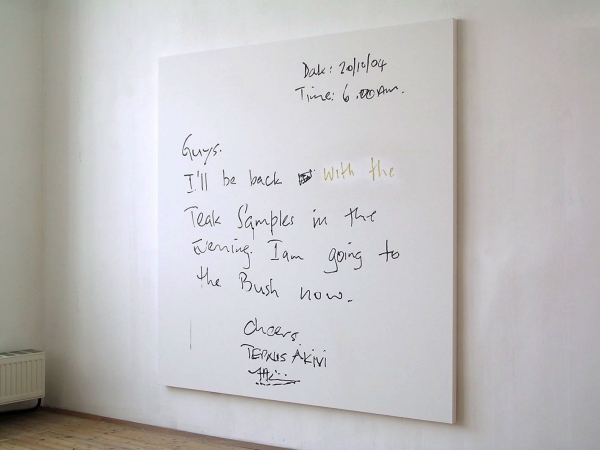 Date: 20/10/04
Time: 6.00am.
Guys.
I'll be back with the
Teak Samples in the
Evening. I am going to
the Bush now.
Cheers.
AKivi